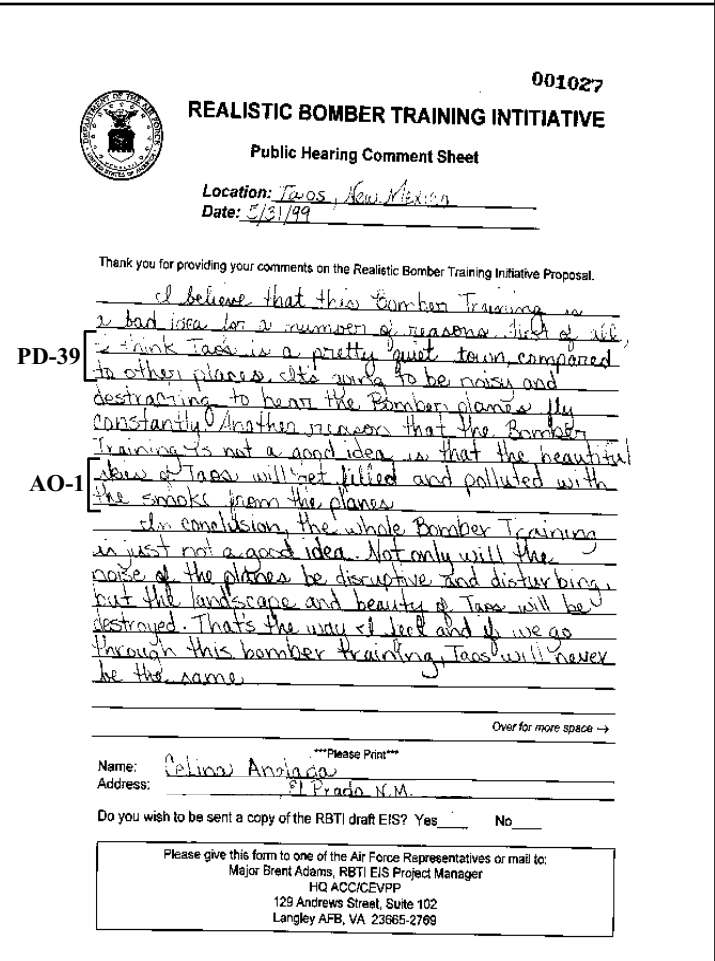 001027
DEPARTMENT OF THE AIR FORCE
UNITED STATES OF AMERICA
REALISTIC BOMBER TRAINING INTITIATIVE
Public Hearing Comment Sheet
Location: Taos, New Mexico
Date: 5/31/99
Thank you for providing your comments on the Realistic Bomber Training Initiative Proposal.
I believe that this Bomber Training is
a bad idea for a number of reasons. First of all,
PD-39
I think Taos is a pretty quiet town, compared
to other places. It's going to be noisy and
destracting to hear the Bomber planes fly
constantly! Another reason that the Bomber
Training is not a good idea is that the beautiful
AO-1
skies of Taos will get filled and polluted with
the smoke from the planes
In conclusion, the whole Bomber Training
is just not a good idea. Not only will the
noise of the planes be disruptive and disturbing,
but the landscape and beauty of Taos will be
destroyed. That's the way I feel and if we go
through this bomber training, Taos will never
be the same
Over for more space →
***Please Print***
Name: Celina
Address: El Prado N.M.
Do you wish to be sent a copy of the RBTI draft EIS? Yes____ No____
Please give this form to one of the Air Force Representatives or mail to:
Major Brent Adams, RBTI EIS Project Manager
HQ ACC/CEVPP
129 Andrews Street, Suite 102
Langley AFB, VA 23665-2769